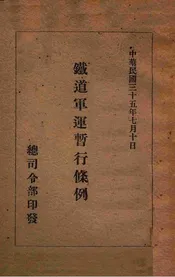 中華民國三十五年七月十日
鐵道軍運暫行條例
總司令部印發